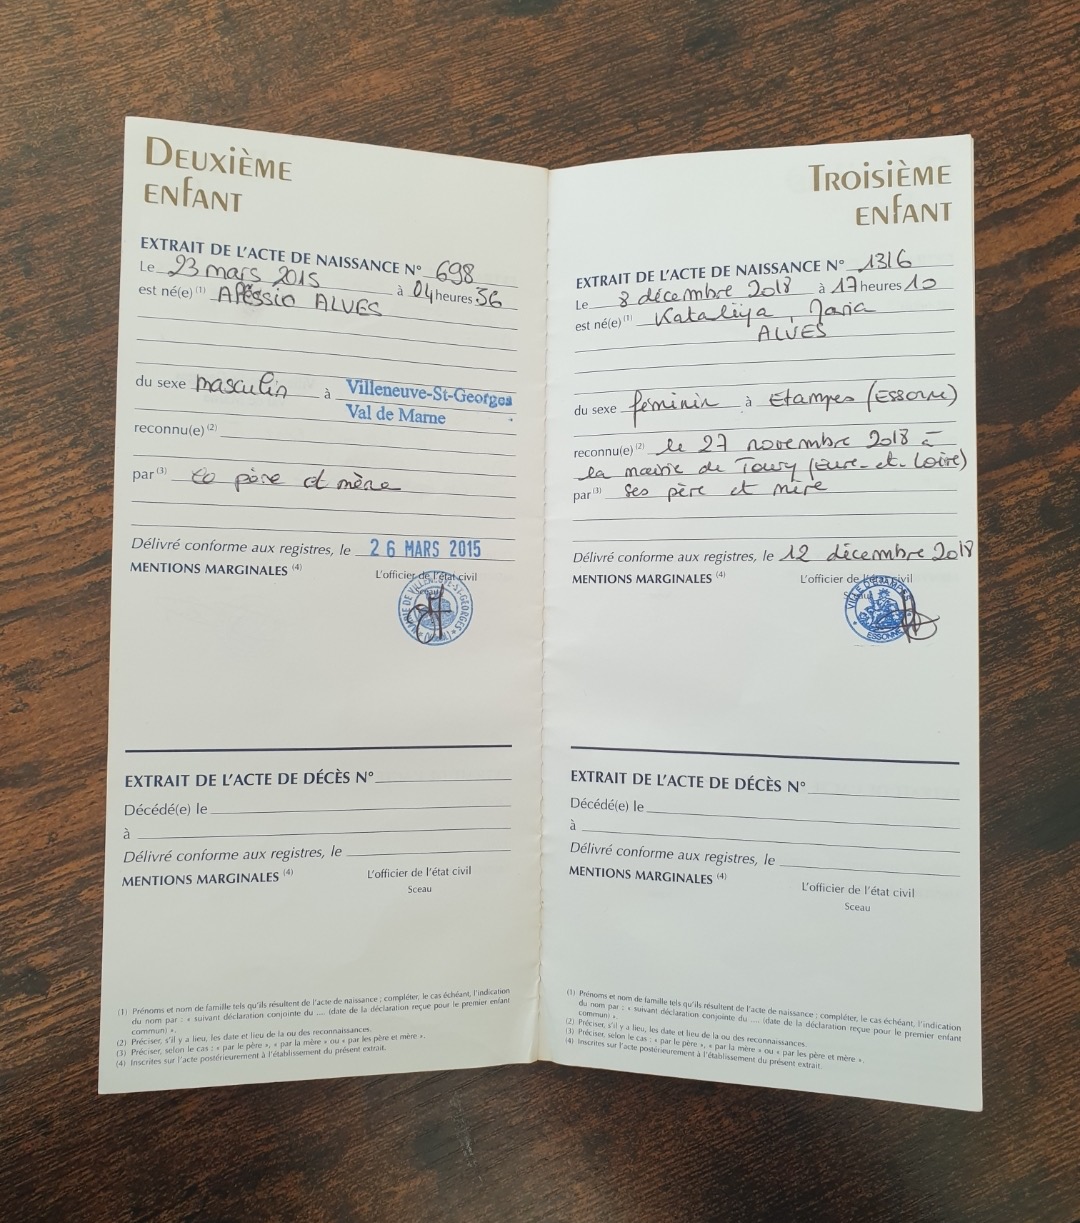 DEUXIÈME
ENFANT
EXTRAIT DE L'ACTE DE NAISSANCE N° 698
Le 23 mars 2015 à 04 heures 56
est né(e) (1) Alessio ALVES
du sexe masculin à Villeneuve-St-Georges
Val de Marne
reconnu(e) (2)
par (3) père et mère
Délivré conforme aux registres, le 26 MARS 2015
MENTIONS MARGINALES (4) L'officier de l'état civil
EXTRAIT DE L'ACTE DE DÉCÈS N°
Décédé(e) le
à
Délivré conforme aux registres, le
MENTIONS MARGINALES (4) L'officier de l'état civil
Sceau
(1) Prénoms et nom de famille tels qu'ils résultent de l'acte de naissance ; compléter, le cas échéant, l'indication
du nom par : « suivant déclaration conjointe du .... (date de la déclaration reçue pour le premier enfant
commun) ».
(2) Préciser, s'il y a lieu, les date et lieu de la ou des reconnaissances.
(3) Préciser, selon le cas : « par le père », « par la mère » ou « par les père et mère ».
(4) Inscrites sur l'acte postérieurement à l'établissement du présent extrait.
TROISIÈME
ENFANT
EXTRAIT DE L'ACTE DE NAISSANCE N° 1316
Le 8 décembre 2018 à 17 heures 10
est né(e) (1) Kataliya, Maria
ALVES
du sexe féminin à Etampes (Essonne)
reconnu(e) (2) le 27 novembre 2018 à
la mairie de Toury (Eure-et-Loire)
par (3) ses père et mère
Délivré conforme aux registres, le 12 décembre 2018
MENTIONS MARGINALES (4) L'officier de l'état civil
VILLE D'ETAMPES
ESSONNE
EXTRAIT DE L'ACTE DE DÉCÈS N°
Décédé(e) le
à
Délivré conforme aux registres, le
MENTIONS MARGINALES (4) L'officier de l'état civil
Sceau
(1) Prénoms et nom de famille tels qu'ils résultent de l'acte de naissance ; compléter, le cas échéant, l'indication
du nom par : « suivant déclaration conjointe du .... (date de la déclaration reçue pour le premier enfant
commun) ».
(2) Préciser, s'il y a lieu, les date et lieu de la ou des reconnaissances.
(3) Préciser, selon le cas : « par le père », « par la mère » ou « par les père et mère ».
(4) Inscrites sur l'acte postérieurement à l'établissement du présent extrait.